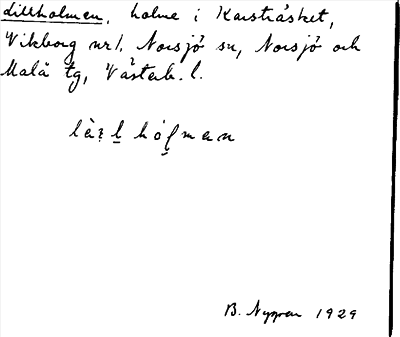 Lillholmen, holme i Karsträsket,
Vikborg nr 1, Norsjö sn, Norsjö och
Malå tg, Västerb. l.
B. Nygren 1929